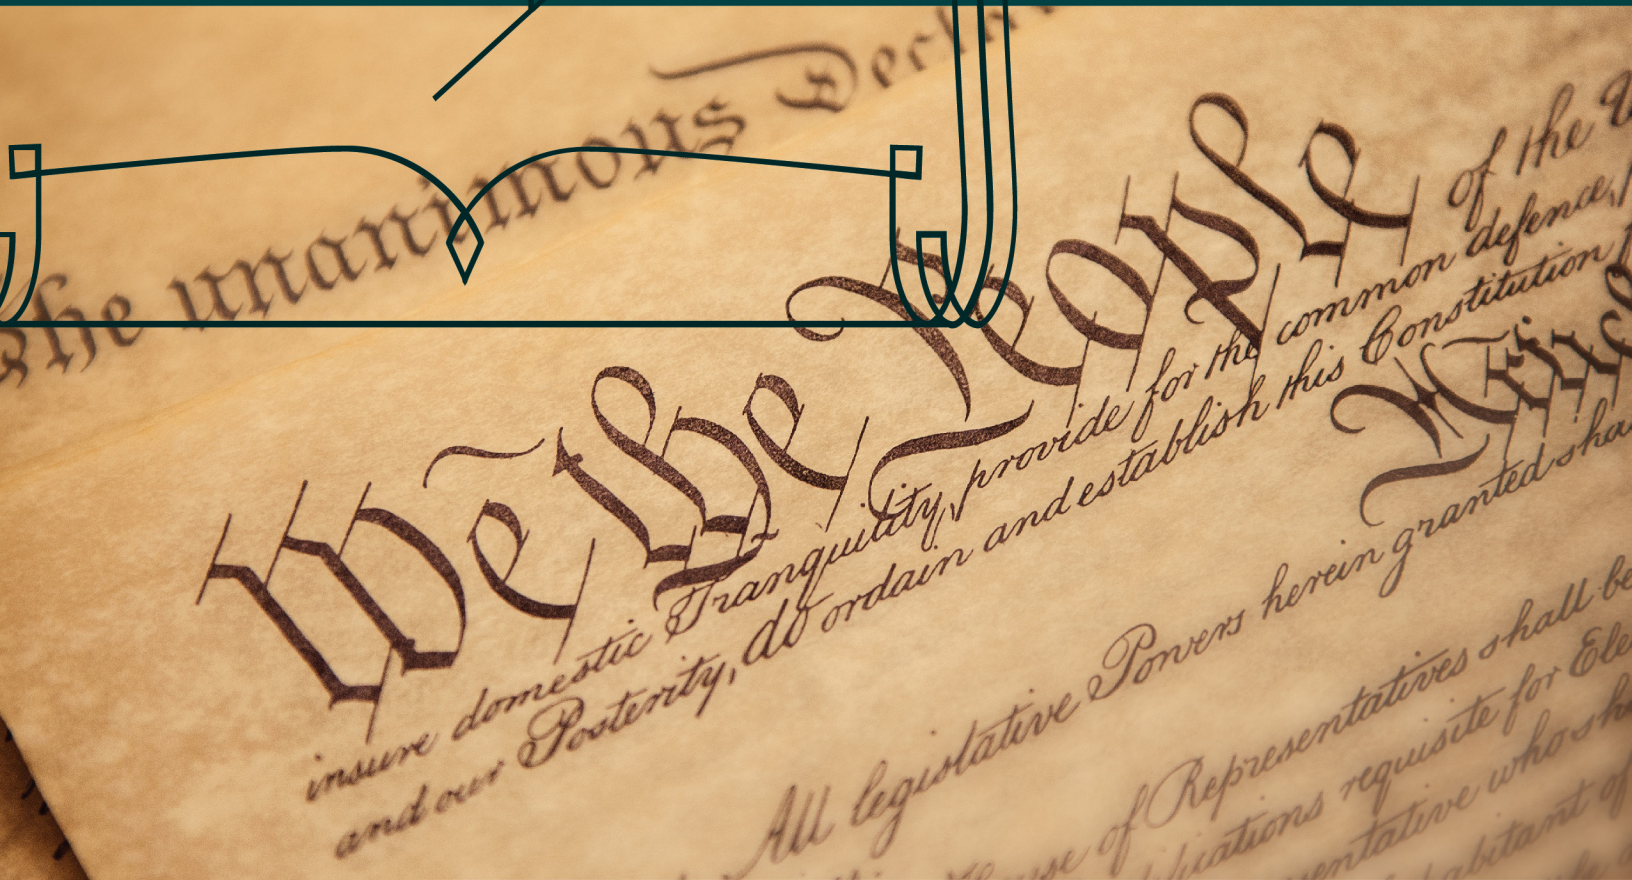 the unanimous Decla
We the People
of the
insure domestic Tranquility, provide for the common defence,
and our Posterity, do ordain and establish this Constitution
All legislative Powers herein granted sha
of Representatives shall be
requisite for Ele
who sh